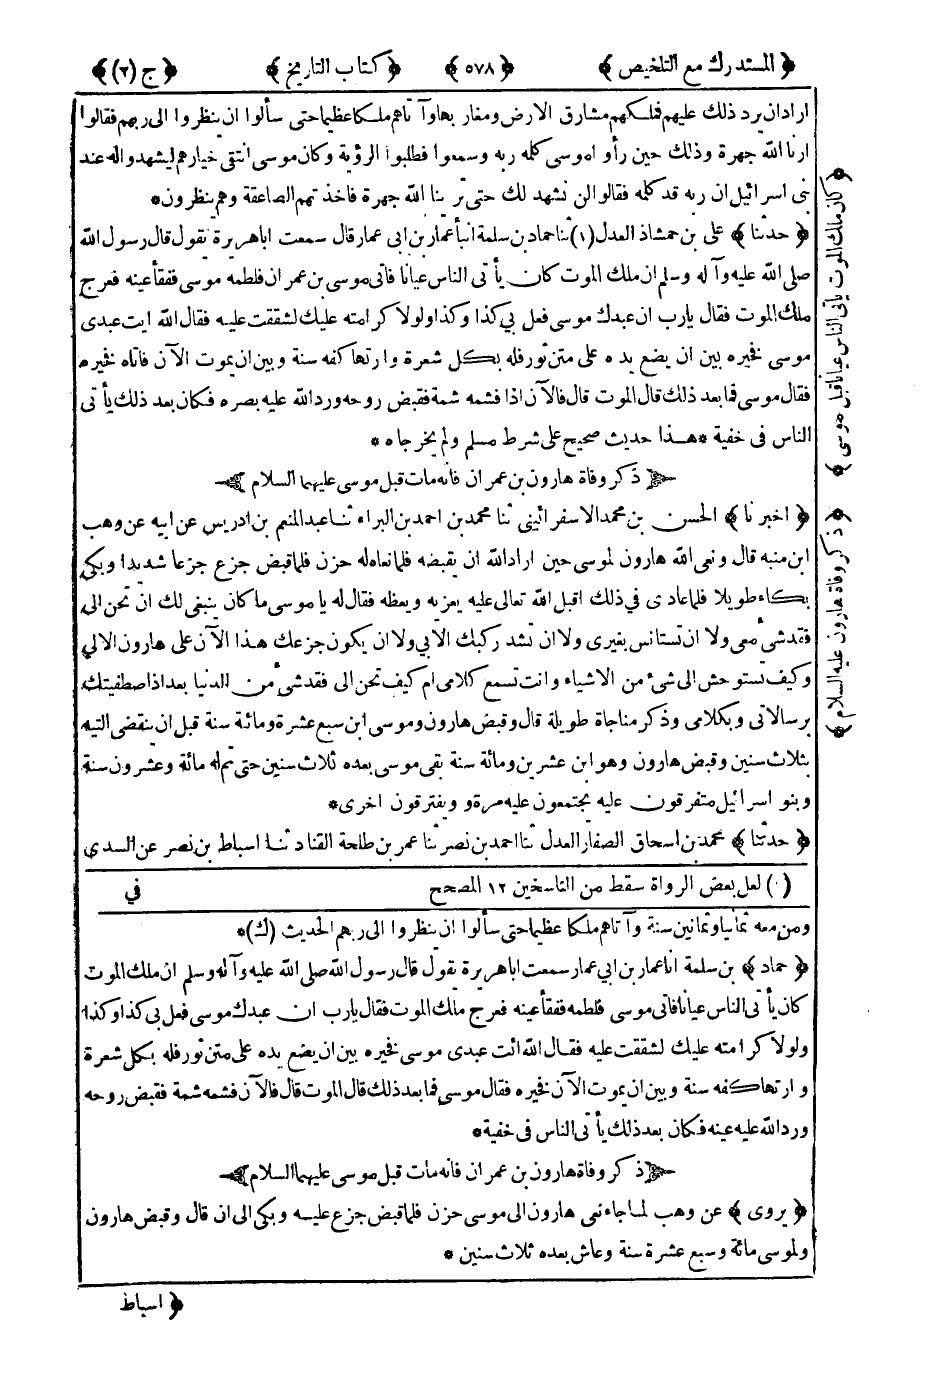 ﴿ المستدرك مع التلخيص ﴾ ﴿ ٥٧٨ ﴾ ﴿ كتاب التاريخ ﴾ ﴿ ج (٢) ﴾
ارادان يرد ذلك عليهم فملكهم مشارق الارض ومغار بهاوآ تاهم ملكا عظيما حتى سألوا ان ينظروا الى ربهم فقالوا
ارنا الله جهرة وذلك حين رأو اموسى كلمه ربه وسمعوا فطلبوا الرؤية وكان موسى انتقى خيارهم ليشهدواله عند
بنى اسرائيل ان ربه قد كلمه فقالوا لن نشهد لك حتى تر ينا الله جهرة فاخذ تهم الصاعقة وهم ينظرون *
﴿ حدثنا ﴾ على بن حمشاذ العدل (١) ثنا حماد بن سلمة انبأ عمار بن ابى عمار قال سمعت اباهريرة يقول قال رسول الله
صلى الله عليه وآله وسلم ان ملك الموت كان يأتى الناس عيانا فاتى موسى بن عمران فلطمه موسى ففقأ عينه فعرج
ملك الموت فقال يارب ان عبدك موسى فعل بي كذا وكذا ولولا كرامته عليك لشققت عليه فقال الله ايت عبدى
موسى فخيره بين ان يضع يده على متن ثور فله بكل شعرة وارتها كفه سنة وبين ان يموت الآن فاتاه فخيره
فقال موسى فما بعد ذلك قال الموت قال فالآن اذا فشمه شمة فقبض روحه ورد الله عليه بصره فكان بعد ذلك يأتى
الناس فى خفية * هذا حديث صحيح على شرط مسلم ولم يخرجاه *
ذكر وفاة هارون بن عمران فانه مات قبل موسى عليهما السلام
﴿ اخبرنا ﴾ الحسن بن محمد الاسفرائينى ثنا محمد بن احمد بن البراء ثنا عبد المنعم بن ادريس عن ابيه عن وهب
ابن منبه قال ونعى الله هارون لموسى حين اراد الله ان يقبضه فلما نعاه له حزن فلما قبض جزع جزعا شديدا وبكى
بكاء طويلا فلما عادى في ذلك اقبل الله تعالى عليه يعزيه ويعظه فقال له يا موسى ما كان ينبغى لك ان تحن الى
فقد شئ معى ولا ان تستانس بغيرى ولا ان تشد ركبك الابي ولا ان يكون جزعك هذا الآن على هارون الالي
وكيف تستوحش الى شئ من الاشياء وانت تسمع كلامى ام كيف تحن الى فقد شئ من الدنيا بعد اذ اصطفيتك
برسالاتى وبكلامى وذكر مناجاة طويلة قال وقبض هارون وموسى ابن سبع عشرة ومائة سنة قبل ان ينقضى التيه
بثلاث سنين وقبض هارون وهو ابن عشرين ومائة سنة بقى موسى بعده ثلاث سنين حتى تم له مائة وعشرون سنة
وبنو اسرائيل متفرقون عليه يجتمعون عليه مرة و يفترقون اخرى *
﴿ حدثنا ﴾ محمد بن اسحاق الصفار العدل ثنا احمد بن نصر ثنا عمر بن طلحة القناد ثنا اسباط بن نصر عن السدى
(١) لعل بعض الرواة سقط من الناسخين ١٢ المصحح في
ومن معه ثمانيا وثمانين سنة وآتاهم ملكا عظيما حتى سألوا ان ينظروا الى ربهم الحديث (ك) *
﴿ حماد ﴾ بن سلمة انا عمار بن ابى عمار سمعت اباهريرة يقول قال رسول الله صلى الله عليه وآله وسلم ان ملك الموت
كان يأتى الناس عيانا فاتى موسى فلطمه ففقأ عينه فعرج ملك الموت فقال يارب ان عبدك موسى فعل بى كذا وكذا
ولولا كرامته عليك لشققت عليه فقال الله ائت عبدى موسى فخيره بين ان يضع يده على متن ثور فله بكل شعرة
وارتها كفه سنة وبين ان يموت الآن فخيره فقال موسى فما بعد ذلك قال الموت قال فالآن فشمه شمة فقبض روحه
ورد الله عليه عينه فكان بعد ذلك يأتى الناس فى خفية *
ذكر وفاة هارون بن عمران فانه مات قبل موسى عليهما السلام
﴿ يروى ﴾ عن وهب لما جاء نعى هارون الى موسى حزن فلما قبض جزع عليه وبكى الى ان قال وقبض هارون
ولموسى مائة وسبع عشرة سنة وعاش بعده ثلاث سنين *
﴿ اسباط
﴿ كان ملك الموت يأتى الناس عيانا قبل موسى ﴾
﴿ ذكر وفاة هارون عليه السلام ﴾